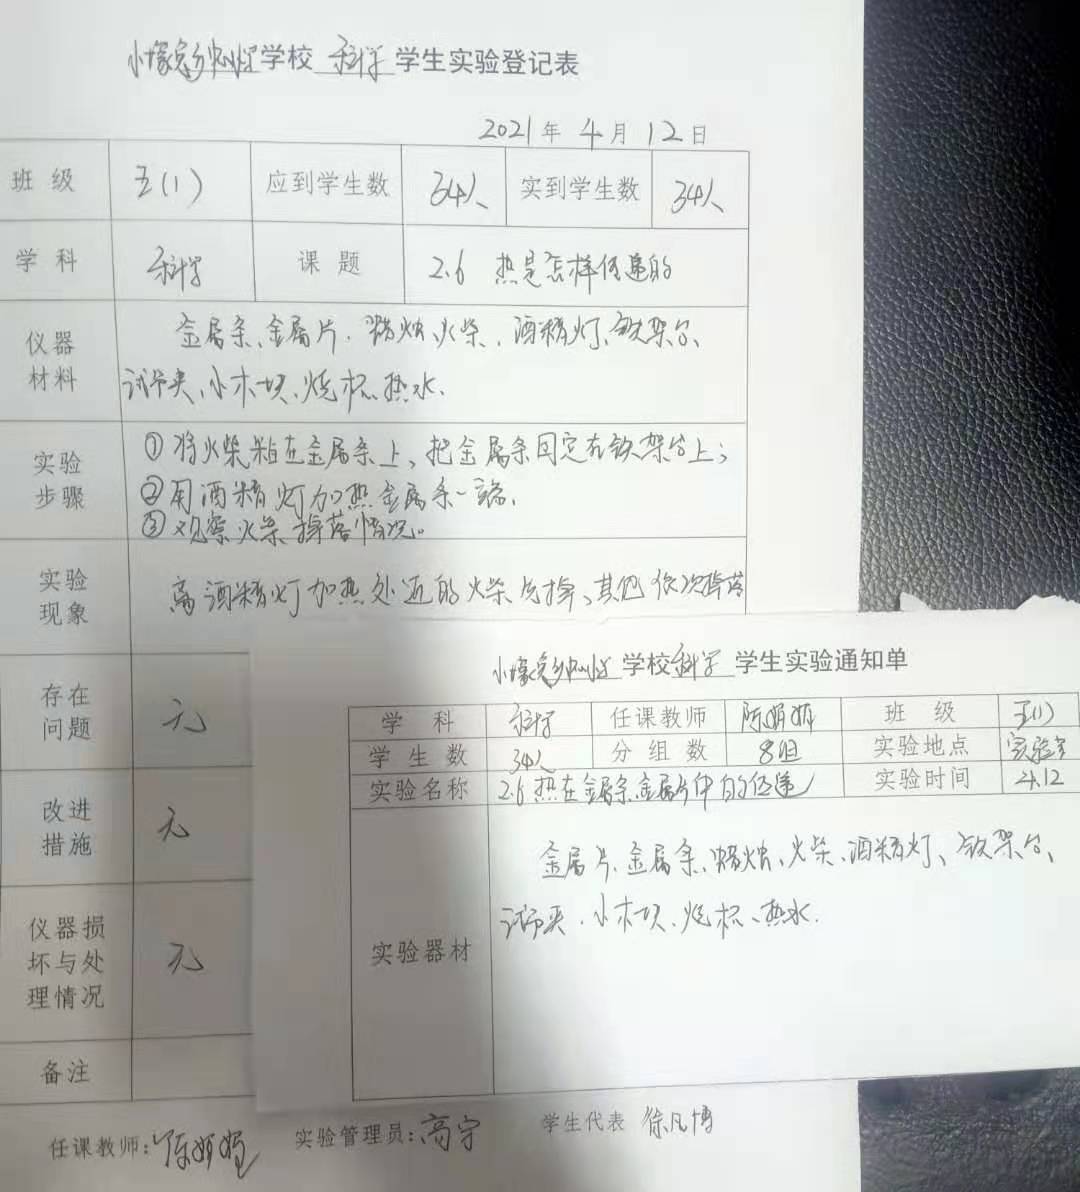 学校 科学 学生实验登记表
2021年 4月 12日
班级 五(1) 应到学生数 34人 实到学生数 34人
学科 科学 课题 2.6 热是怎样传递的
仪器材料 金属条、金属片、蜡烛、火柴、酒精灯、铁架台、
试管夹、小木块、烧杯、热水.
实验步骤 ①将火柴粘在金属条上,把金属条固定在铁架台上;
②用酒精灯加热金属条一端.
③观察火柴掉落情况。
实验现象 离酒精灯加热处近的火柴先掉、其他依次掉落
存在问题 无
改进措施 无
仪器损坏与处理情况 无
备注
任课教师: 陈娟娟 实验管理员: 高宁 学生代表 徐凡博
学校 科学 学生实验通知单
学科 科学 任课教师 陈娟娟 班级 五(1)
学生数 34人 分组数 8组 实验地点 实验室
实验名称 2.6 热在金属条金属片中的传递 实验时间 4.12
实验器材 金属片、金属条、蜡烛、火柴、酒精灯、铁架台、
试管夹、小木块、烧杯、热水.